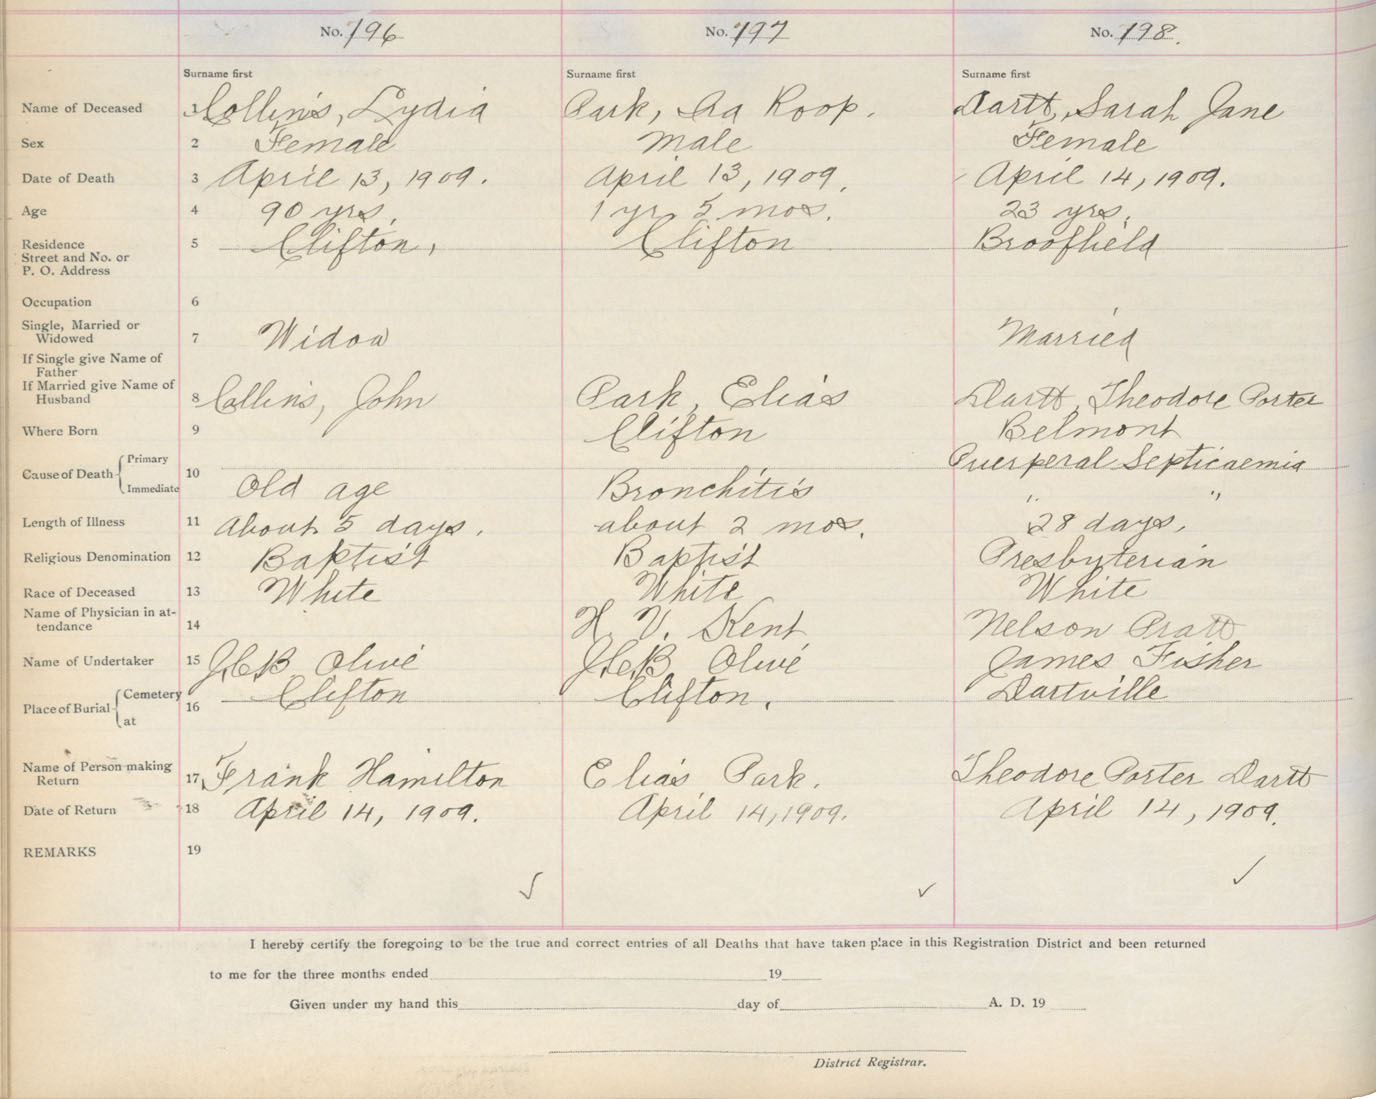 No. 196 No. 197 No. 198.
Surname first Surname first Surname first
Name of Deceased 1 Collins, Lydia Park, Ira Roop. Dartt, Sarah Jane
Sex 2 Female Male Female
Date of Death 3 April 13, 1909. April 13, 1909. April 14, 1909.
Age 4 90 yrs. 1 yr 5 mos. 23 yrs.
Residence 5 Clifton, Clifton Broofield
Street and No. or
P. O. Address
Occupation 6
Single, Married or
Widowed 7 Widow Married
If Single give Name of
Father
If Married give Name of
Husband 8 Collins, John Park, Elias Dartt, Theodore Porter
Where Born 9 Clifton Belmont
Cause of Death Primary 10 Puerperal Septicaemia
Immediate Old age Bronchitis " "
Length of Illness 11 About 5 days. about 2 mos. 28 days.
Religious Denomination 12 Baptist Baptist Presbyterian
Race of Deceased 13 White White White
Name of Physician in at-
tendance 14 H. V. Kent Nelson Pratt
Name of Undertaker 15 J.C.B Olive J.C.B. Olive James Fisher
Place of Burial Cemetery 16 Clifton Clifton. Dartville
at
Name of Person making
Return 17 Frank Hamilton Elias Park. Theodore Porter Dartt
Date of Return 18 April 14, 1909. April 14, 1909. April 14, 1909.
REMARKS 19
✓ ✓ ✓
I hereby certify the foregoing to be the true and correct entries of all Deaths that have taken place in this Registration District and been returned
to me for the three months ended 19
Given under my hand this day of A. D. 19
District Registrar.